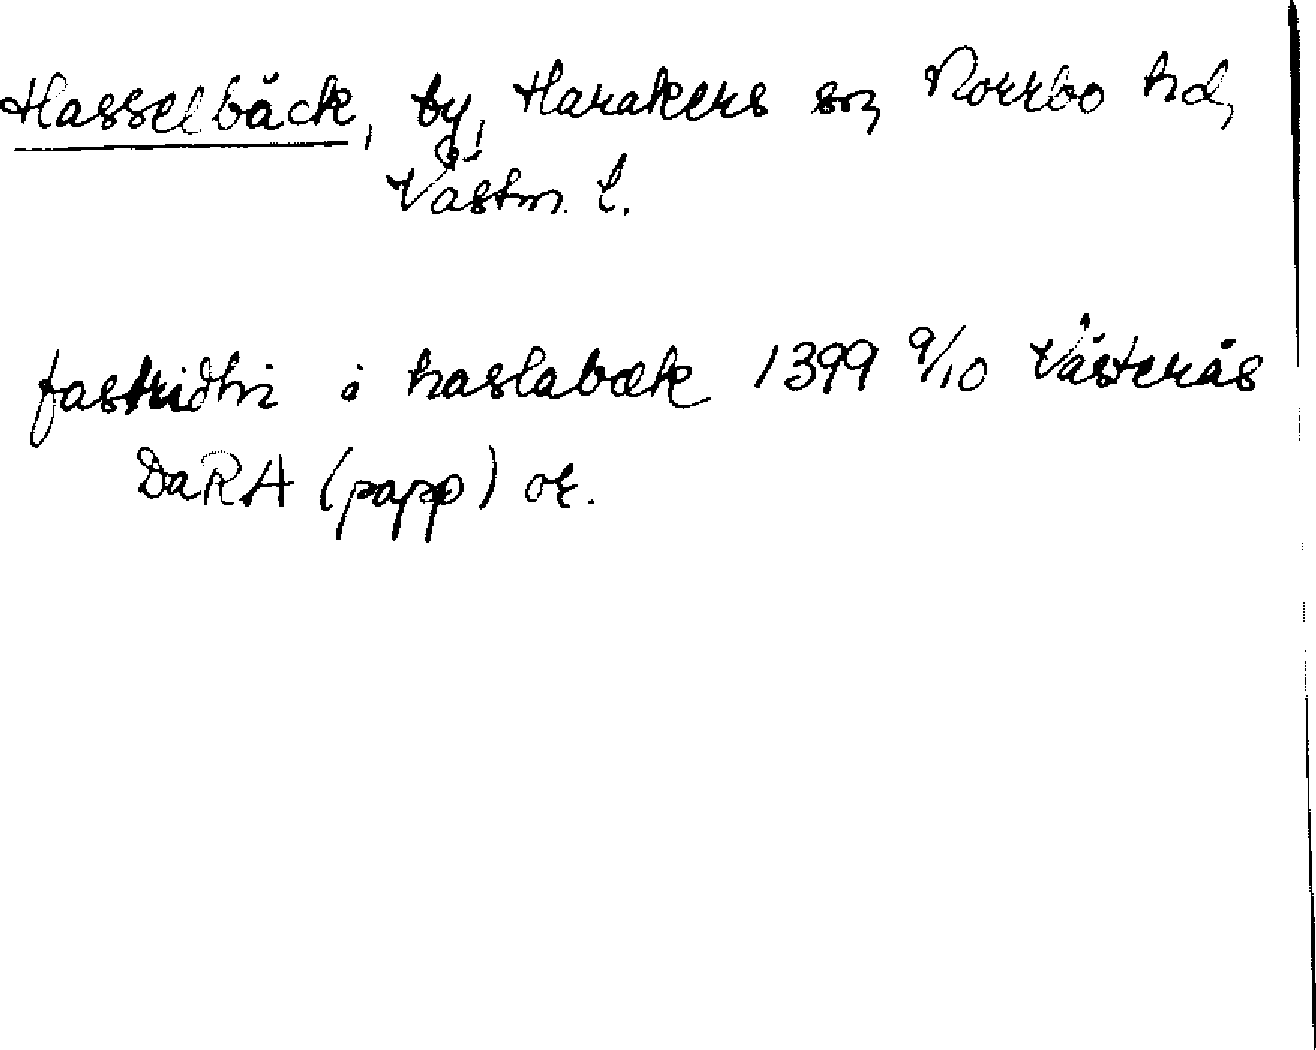 Hasselbäck, by, Harakers sn, Norrbo hd,
Västm. l.
fastridhi i haslabæk 1399 9/10 Västerås
DaRA (papp) or.